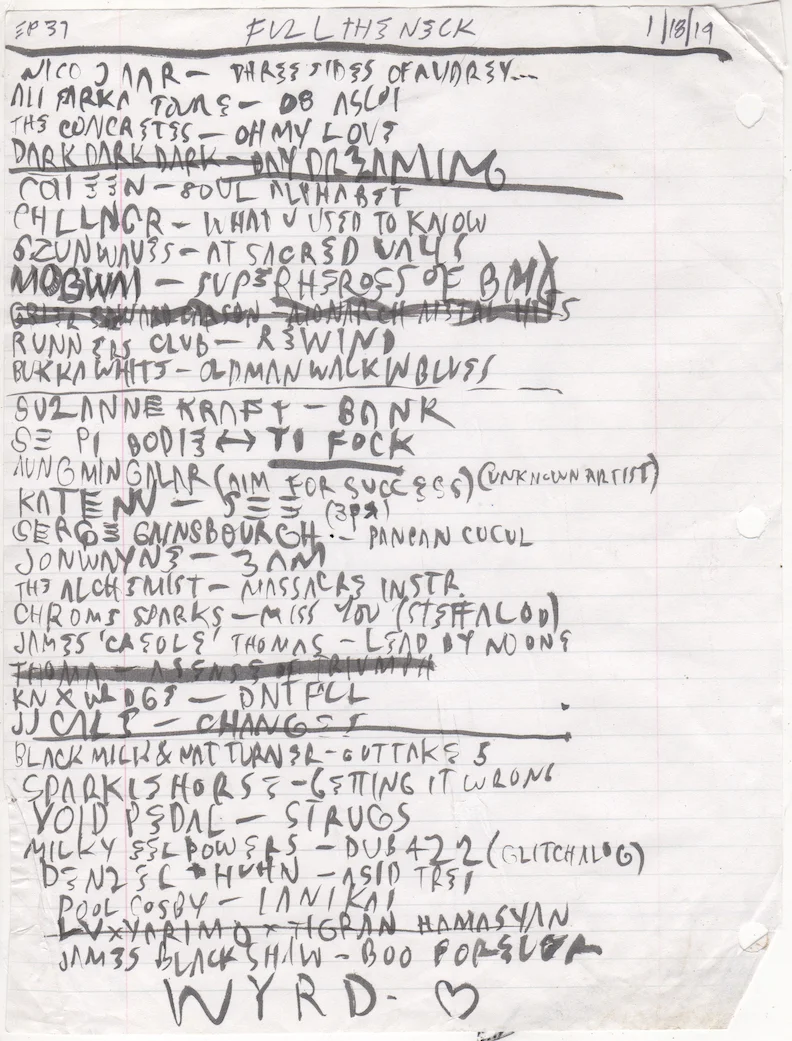 EP 37 FULL THE NECK 1/18/19
NICO JAAR — THREE SIDES OF AUDREY...
ALI FARKA TOURE — 08 ASCO1
THE CONCRETES — OH MY LOVE
DARK DARK DARK — DAY DREAMING
COLEEN — SOUL ALPHABET
PHLLNGR — WHAT U USED TO KNOW
GZUNWAVES — AT SACRED WALLS
MOGWAI — SUPERHEROES OF BMX
GREER EDWARD CARSON — MONARCH METAL HILLS
RUNNERS CLUB — REWIND
BUKKA WHITE — OLD MAN WALKIN BLUES
SUZANNE KRAFT — BANK
SE PI BODIE ↔ TI FOCK
AUNG MINGALAR (AIM FOR SUCCESS) (UNKNOWN ARTIST)
KATE NV — SEE
SERGE GAINSBOURGH — PANPAN CUCUL
JONWAYNE — 3 AM
THE ALCHEMIST — MASSACRE INSTR.
CHROME SPARKS — MISS YOU (STEFFALOO)
JAMES 'CREOLE' THOMAS — LEAD BY NO ONE
THOMA — A SENSE OF TRIUMPH
KNXWLDGE — DNTFLL
JJ CALE — CHANGES
BLACK MILK & NAT TURNER — OUTTAKE 5
SPARKLSHORSE — GETTING IT WRONG
VOID PEDAL — STRUGS
MILKY EEL POWERS — DUB 422 (GLITCHALOG)
DENZEL + HUHN — ASID TREI
POOL COSBY — LANIKAI
LV X YARIMO X TIGRAN HAMASYAN
JAMES BLACKSHAW — BOO FOREVER
WYRD — ♡